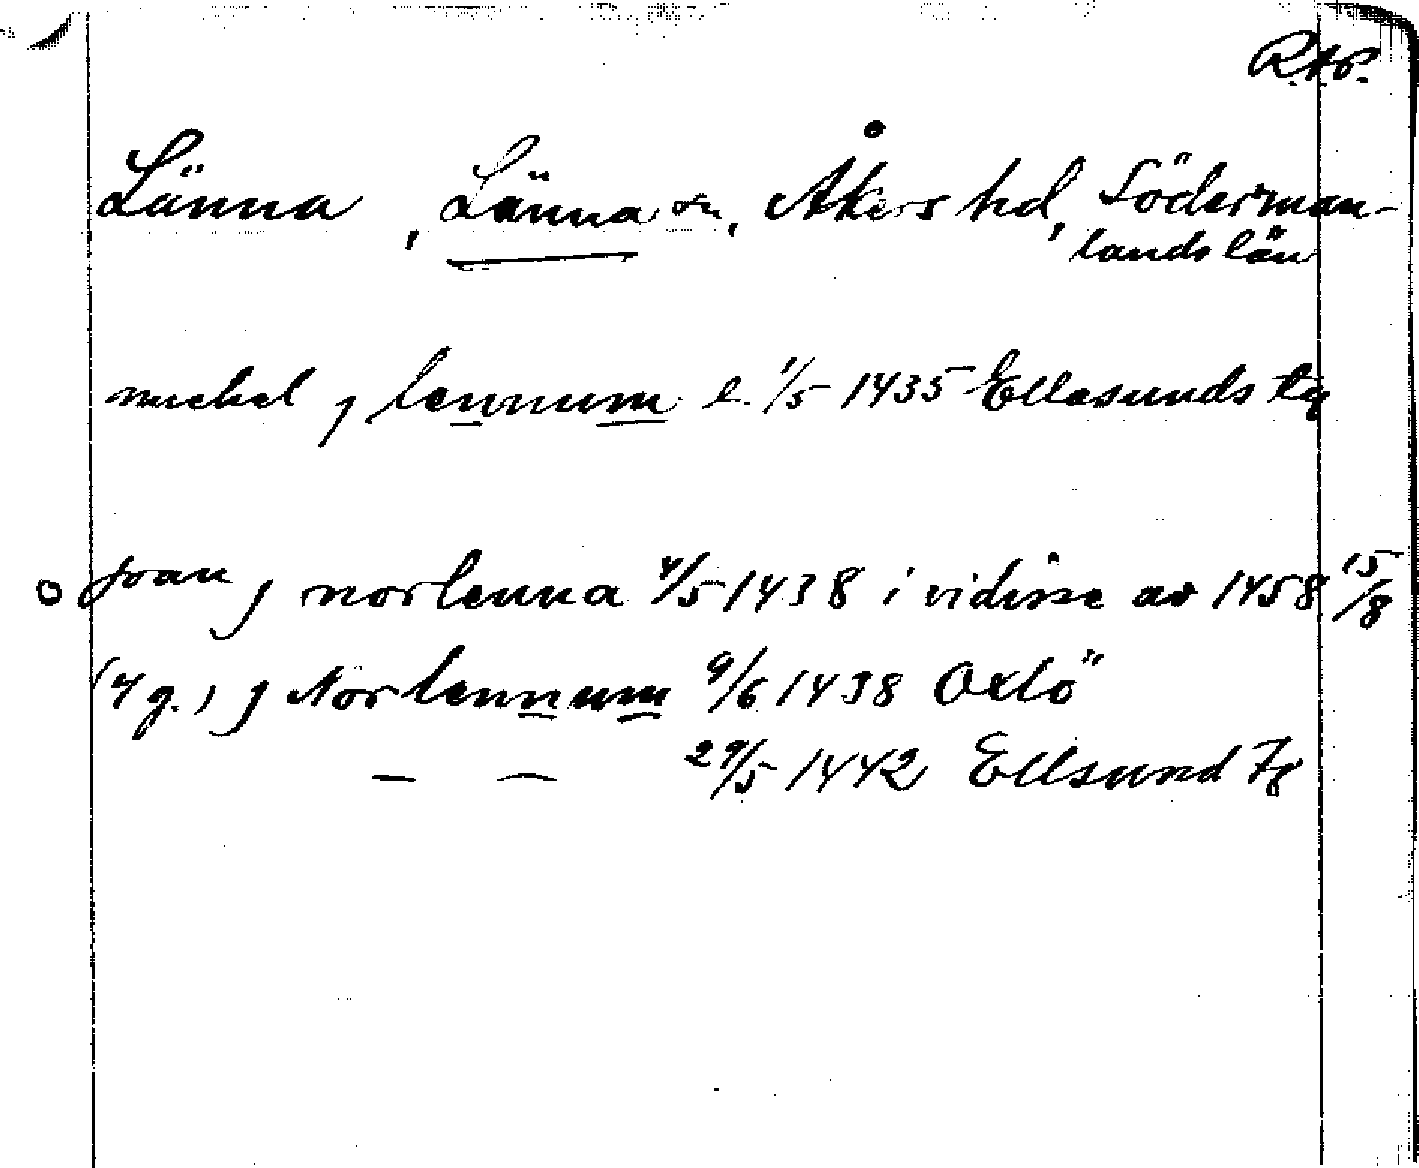 RAP.
Länna, Länna sn, Åkers hd, Söderman-
lands län
michel j lennum l. 1/5 1435 Ellesunds tg
o joan j norlenna 4/5 1438 i vidisse av 1458 15/8
(4 g.) j Norlennum 9/6 1438 Oxlö
— — 29/5 1442 Ellsund Tg